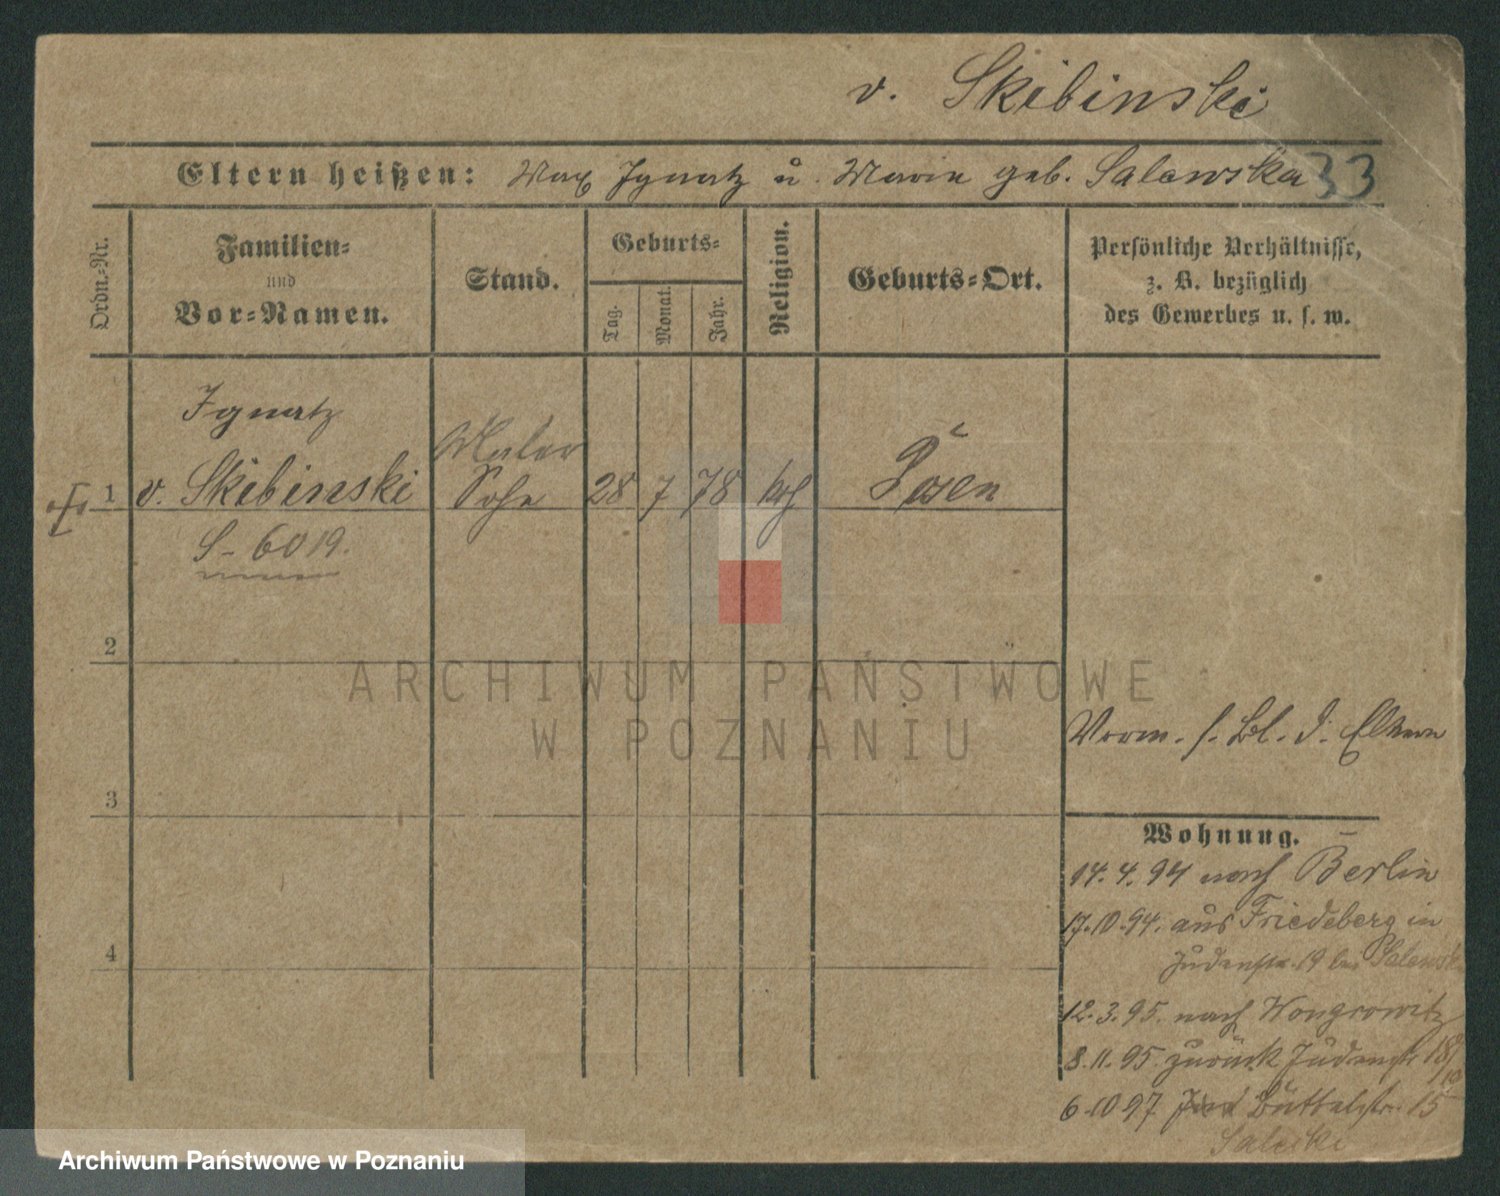 v. Skibinski
Eltern heißen: Max Ignatz u. Marie geb. Salewska 33
Ordn.-Nr.
Familien-
und
Vor-Namen.
Stand.
Geburts-
Tag.
Monat.
Jahr.
Religion.
Geburts-Ort.
Persönliche Verhältnisse,
z. B. bezüglich
des Gewerbes u. s. w.
Ignatz
Maler
1 v. Skibinski Sohn 28 7 78 kth Posen
S-6019.
2
ARCHIWUM PAŃSTWOWE
W POZNANIU
Vorm. s. Bl. d. Eltern
3
Wohnung.
14.4.94 nach Berlin
17.10.94. aus Friedeberg in
Judenstr. 19 bei
4
12.3.95. nach Wongrowitz
8.11.95. zurück Judenstr
6.10 97 Büttelstr. 15
Archiwum Państwowe w Poznaniu